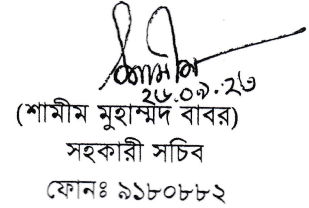 ২৮.০৯.২৩
(শামীম মুহাম্মদ বাবর)
সহকারী সচিব
ফোনঃ ৯১৮০৮৮২